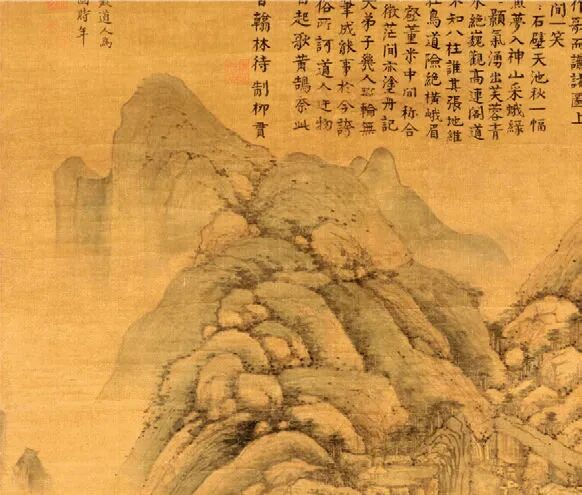 圖上
間一笑
石壁天池秋一幅
夢入神山采蛾綠
顥氣湧出芙蓉青
絕巍觀高連閣道
不知八柱誰其張地維
鳥道險絕橫峨眉
壑董米中間稱合
微茫間亦塗丹記
大弟子幾人輪無
筆成能事於今誇
俗所訶道人物
起歌黃鵠奈此
翰林待制柳貫
道人為
圖時年